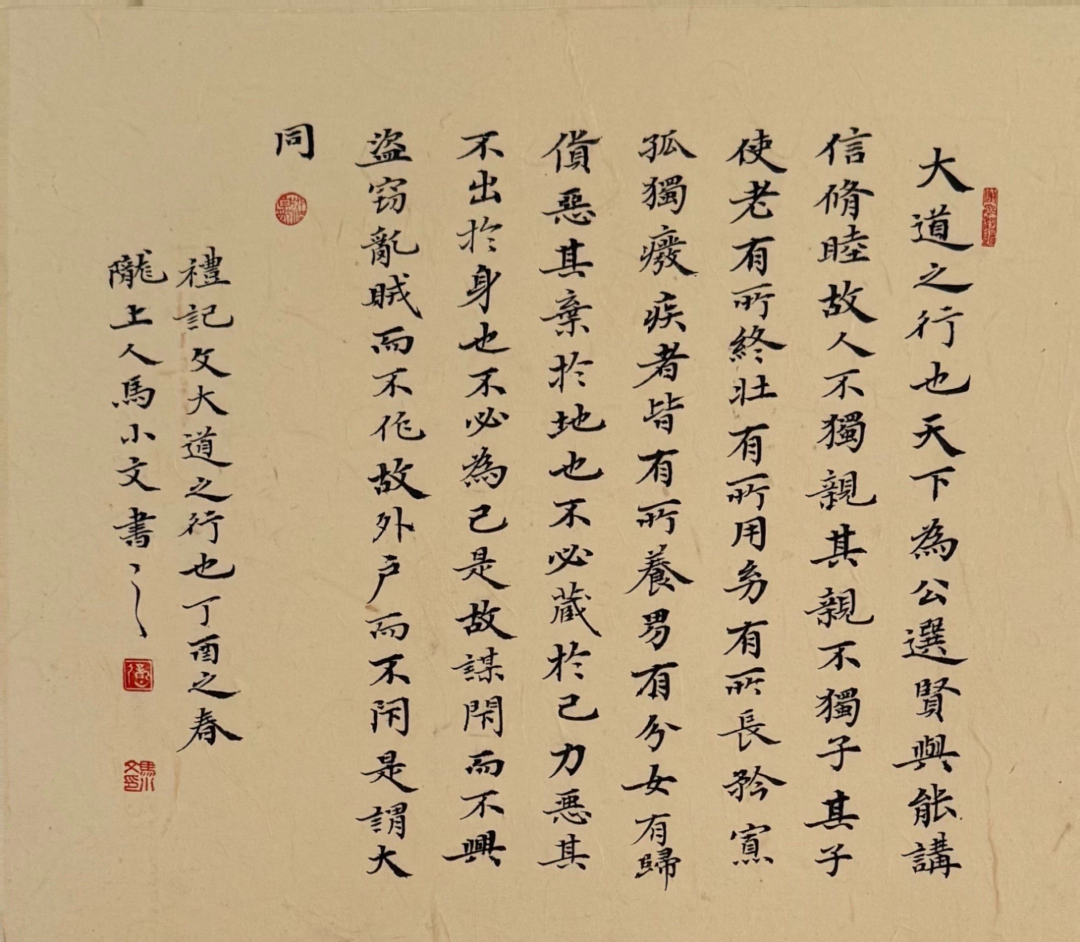 大道之行也天下為公選賢與能講
信脩睦故人不獨親其親不獨子其子
使老有所終壯有所用幼有所長矜寡
孤獨癈疾者皆有所養男有分女有歸
貨惡其棄於地也不必藏於己力惡其
不出於身也不必為己是故謀閉而不興
盜窃亂賊而不作故外戶而不閉是謂大
同
禮記文大道之行也丁酉之春
隴上人馬小文書之
馬小文印